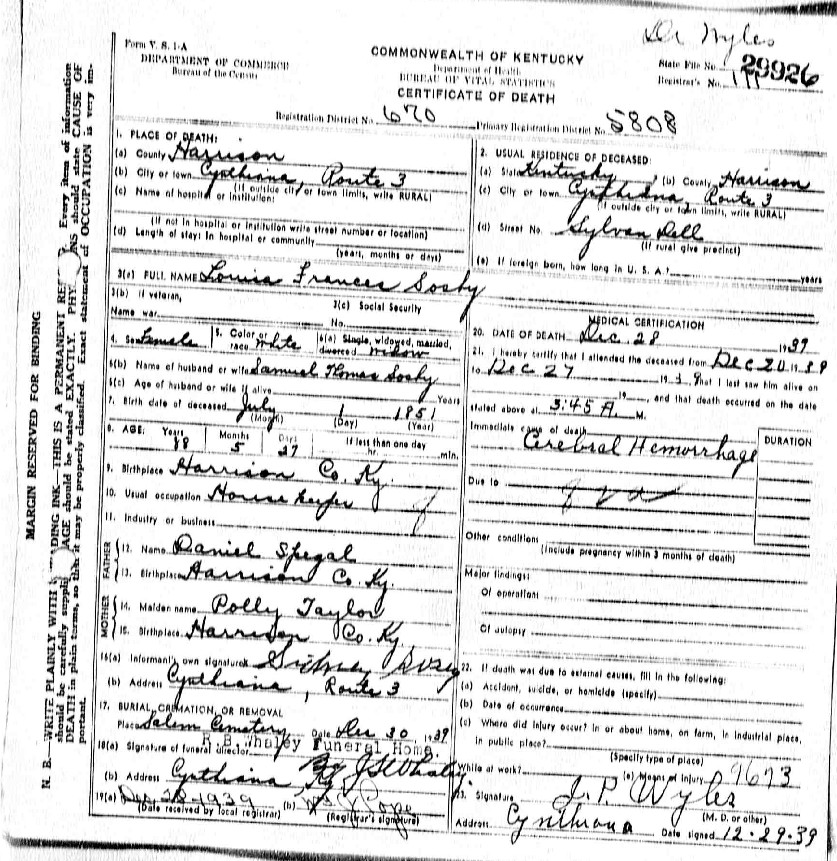 Dr Wyles
Form V. S. 1-A
DEPARTMENT OF COMMERCE
Bureau of the Census
COMMONWEALTH OF KENTUCKY
Department of Health
BUREAU OF VITAL STATISTICS
CERTIFICATE OF DEATH
State File No. 29926
Registrar's No.
Registration District No. 670 Primary Registration District No. 5808
MARGIN RESERVED FOR BINDING
N. B.—WRITE PLAINLY WITH
ADING INK—THIS IS A PERMANENT RE
Every item of information
should be carefully suppli
AGE should be stated EXACTLY. PHY
NS should state CAUSE OF
DEATH in plain terms, so that it may be properly classified. Exact statement of OCCUPATION is very im-
portant.
1. PLACE OF DEATH:
(a) County Harrison
(b) City or town Cynthiana, Route 3
(If outside city or town limits, write RURAL)
(c) Name of hospital or institution:
(If not in hospital or institution write street number or location)
(d) Length of stay: In hospital or community
(years, months or days)
2. USUAL RESIDENCE OF DECEASED:
(a) State Kentucky, (b) County Harrison
(c) City or town Cynthiana, Route 3
(If outside city or town limits, write RURAL)
(d) Street No. Sylvan Dell
(If rural give precinct)
(e) If foreign born, how long in U. S. A.? years
3(a) FULL NAME Louisa Frances Sosby
3(b) If veteran,
Name war
3(c) Social Security
No.
4. Sex Female
5. Color or
race White
6(a) Single, widowed, married,
divorced widow
6(b) Name of husband or wife Samuel Thomas Sosby
6(c) Age of husband or wife if alive Years
7. Birth date of deceased July 1 1851
(Month) (Day) (Year)
8. AGE: Years 88 Months 5 Days 27 If less than one day
hr. min.
9. Birthplace Harrison Co. Ky.
10. Usual occupation House keeper
11. Industry or business
FATHER
12. Name Daniel Spegal
13. Birthplace Harrison Co. Ky.
MOTHER
14. Maiden name Polly Taylor
15. Birthplace Harrison Co. Ky
16(a) Informant's own signature Sosby
(b) Address Cynthiana, Route 3
17. BURIAL, CREMATION, OR REMOVAL
Place Salem Cemetery Date Dec 30 1939
18(a) Signature of funeral director R.B. Whaley Funeral Home,
By J S Whaley
(b) Address Cynthiana, Ky
19(a) Dec 28-1939 (b) Pope
(Date received by local registrar) (Registrar's signature)
MEDICAL CERTIFICATION
20. DATE OF DEATH Dec. 28 1939
21. I hereby certify that I attended the deceased from Dec 20 1939
to Dec 27 1939 that I last saw him alive on
19 , and that death occurred on the date
stated above at 3:45 A. M.
Immediate cause of death
Cerebral Hemorrhage
DURATION
Due to
Other conditions
(Include pregnancy within 3 months of death)
Major findings:
Of operations
Of autopsy
22. If death was due to external causes, fill in the following:
(a) Accident, suicide, or homicide (specify)
(b) Date of occurrence
(c) Where did injury occur? In or about home, on farm, in industrial place,
in public place?
(Specify type of place)
While at work? (e) Means of injury 9673
23. Signature J. P. Wyles
(M. D. or other)
Address Cynthiana Date signed 12-29-39